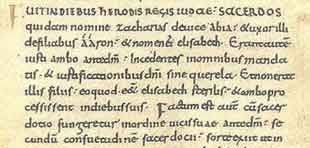 FUIT IN DIEBUS HERODIS REGIS IUDAEAE SACERDOS
quidam nomine zacharias deuice abia · & uxor illi
de filiabus aaron · & nomen ei elisabeth · Erant autem
iusti ambo ante dm̄ · Incedentes inomnibus manda
tis · & iustificationibus dnī sine querela · Et non erat
illis filius · eo quod ess& elisabeth sterilis · & ambo pro
cessissent indiebus suis · Factum est autē cū sacer
dotio fungeretur inordine uicis suae ante dm̄ · se
cundū consuetudinē sacerdotii · sorte exiit ut in